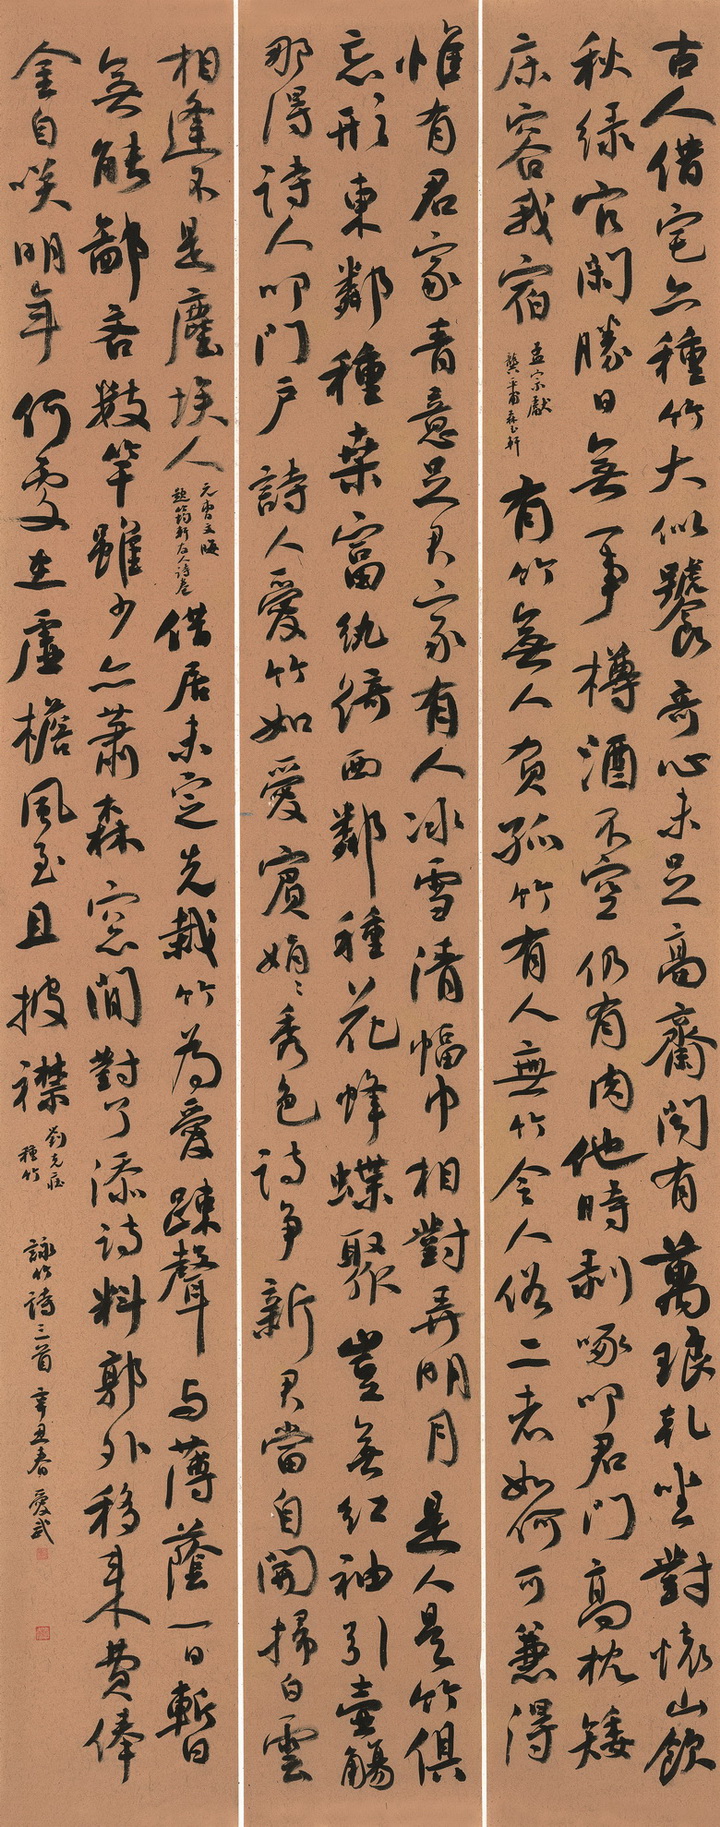 古人借宅亦種竹大似饕奇心未足高齋閑有萬琅玕坐對懷山飲
秋綠官閑勝日無一事樽酒不空仍有肉他時剥啄叩君門高枕矮
床容我宿
孟宗獻
龔平甫森玉軒
有竹無人負孤竹有人無竹令人俗二者如何可兼得
惟有君家音意足君家有人冰雪清幅巾相對弄明月是人是竹俱
忘形東鄰種桑富紈綺西鄰種花蜂蝶聚豈無紅袖引壺觴
那得詩人叩門戶詩人愛竹如愛賓娟〻秀色詩争新君當自開掃白雲
相逢不是塵埃人
元曹文晦
題筠軒友人詩卷
借居未定先栽竹為愛疎聲与薄蔭一日暫日
無能鄙吝數竿雖少亦蕭森窓間對了添詩料郭外移来費俸
金自咲明年何處在虛檐風至且披襟
劉克莊
種竹
詠竹詩三首 辛丑春 愛武